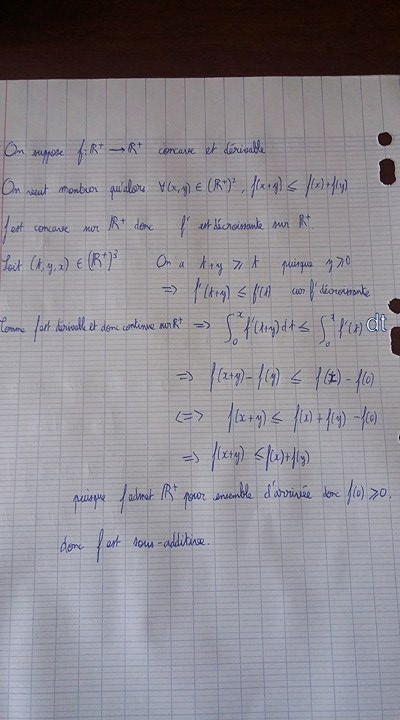 On suppose f: ℝ⁺ → ℝ⁺ concave et dérivable
On veut montrer qu'alors ∀(x,y) ∈ (ℝ⁺)², f(x+y) ≤ f(x)+f(y)
f est concave sur ℝ⁺ donc f' est décroissante sur ℝ⁺.
Soit (t,y,x) ∈ (ℝ⁺)³ On a t+y ≥ t puisque y ≥ 0
=> f'(t+y) ≤ f'(t) car f' décroissante
Comme f est dérivable et donc continue sur ℝ⁺ => ∫₀ˣ f'(t+y) dt ≤ ∫₀ˣ f'(t) dt
=> f(x+y) - f(y) ≤ f(x) - f(0)
<=> f(x+y) ≤ f(x) + f(y) - f(0)
=> f(x+y) ≤ f(x)+f(y)
puisque f admet ℝ⁺ pour ensemble d'arrivée donc f(0) ≥ 0.
donc f est sous-additive.